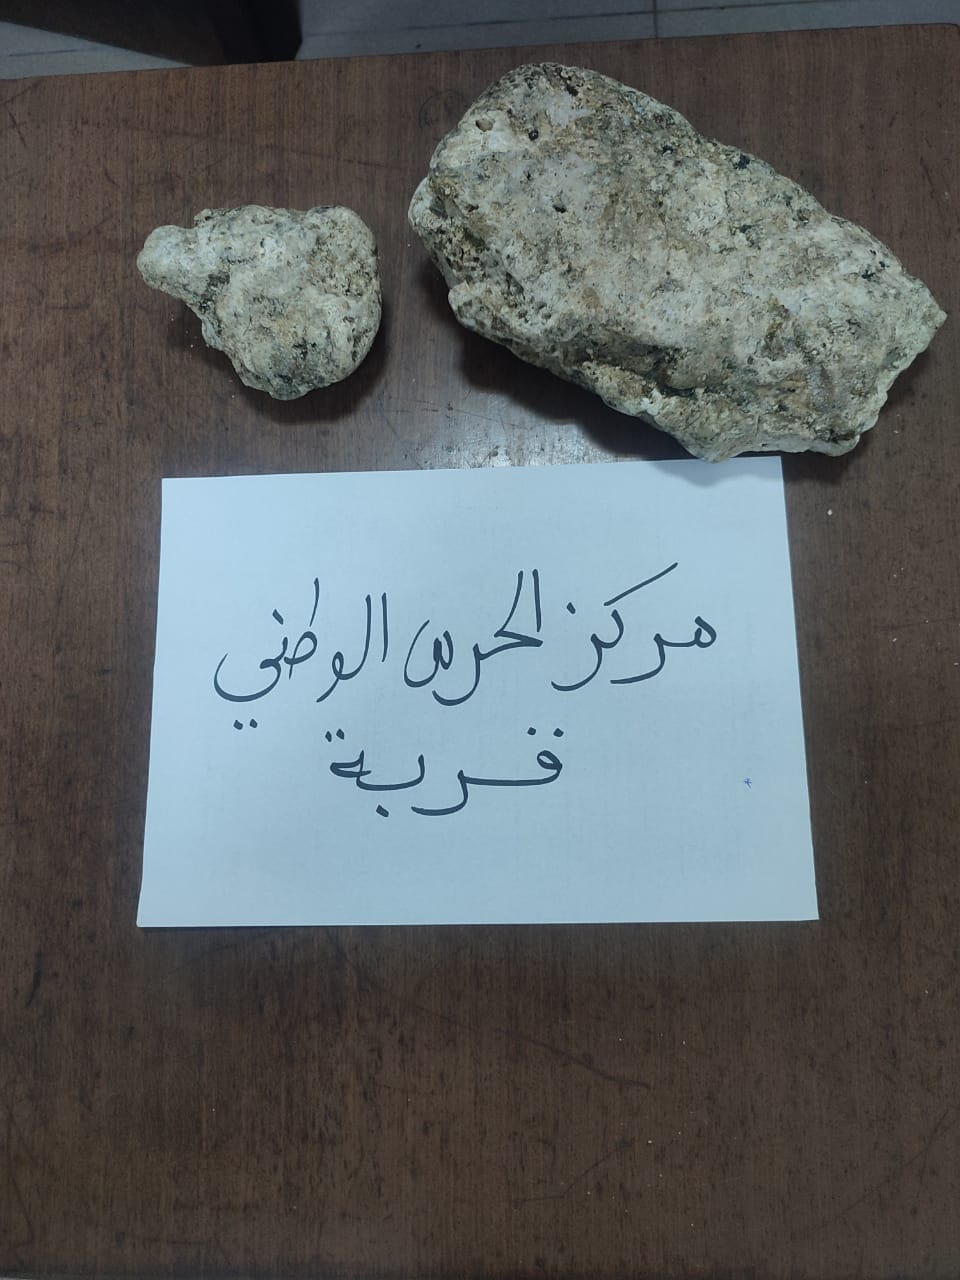 مركز الحرس الوطني
قربة